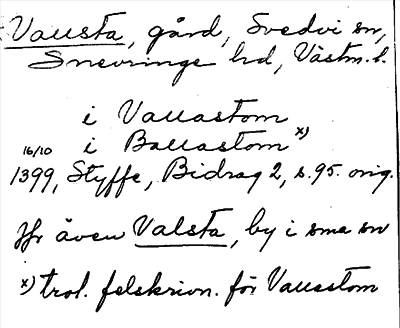 Vallsta, gård, Svedvi sn,
Snevringe hd, Västm. l.
i Vallastom
16/10 i Ballastom x)
1399, Styffe, Bidrag 2, s. 95. orig.
Jfr även Valsta, by i sma sn
x) trol. felskrivn. för Vallastom